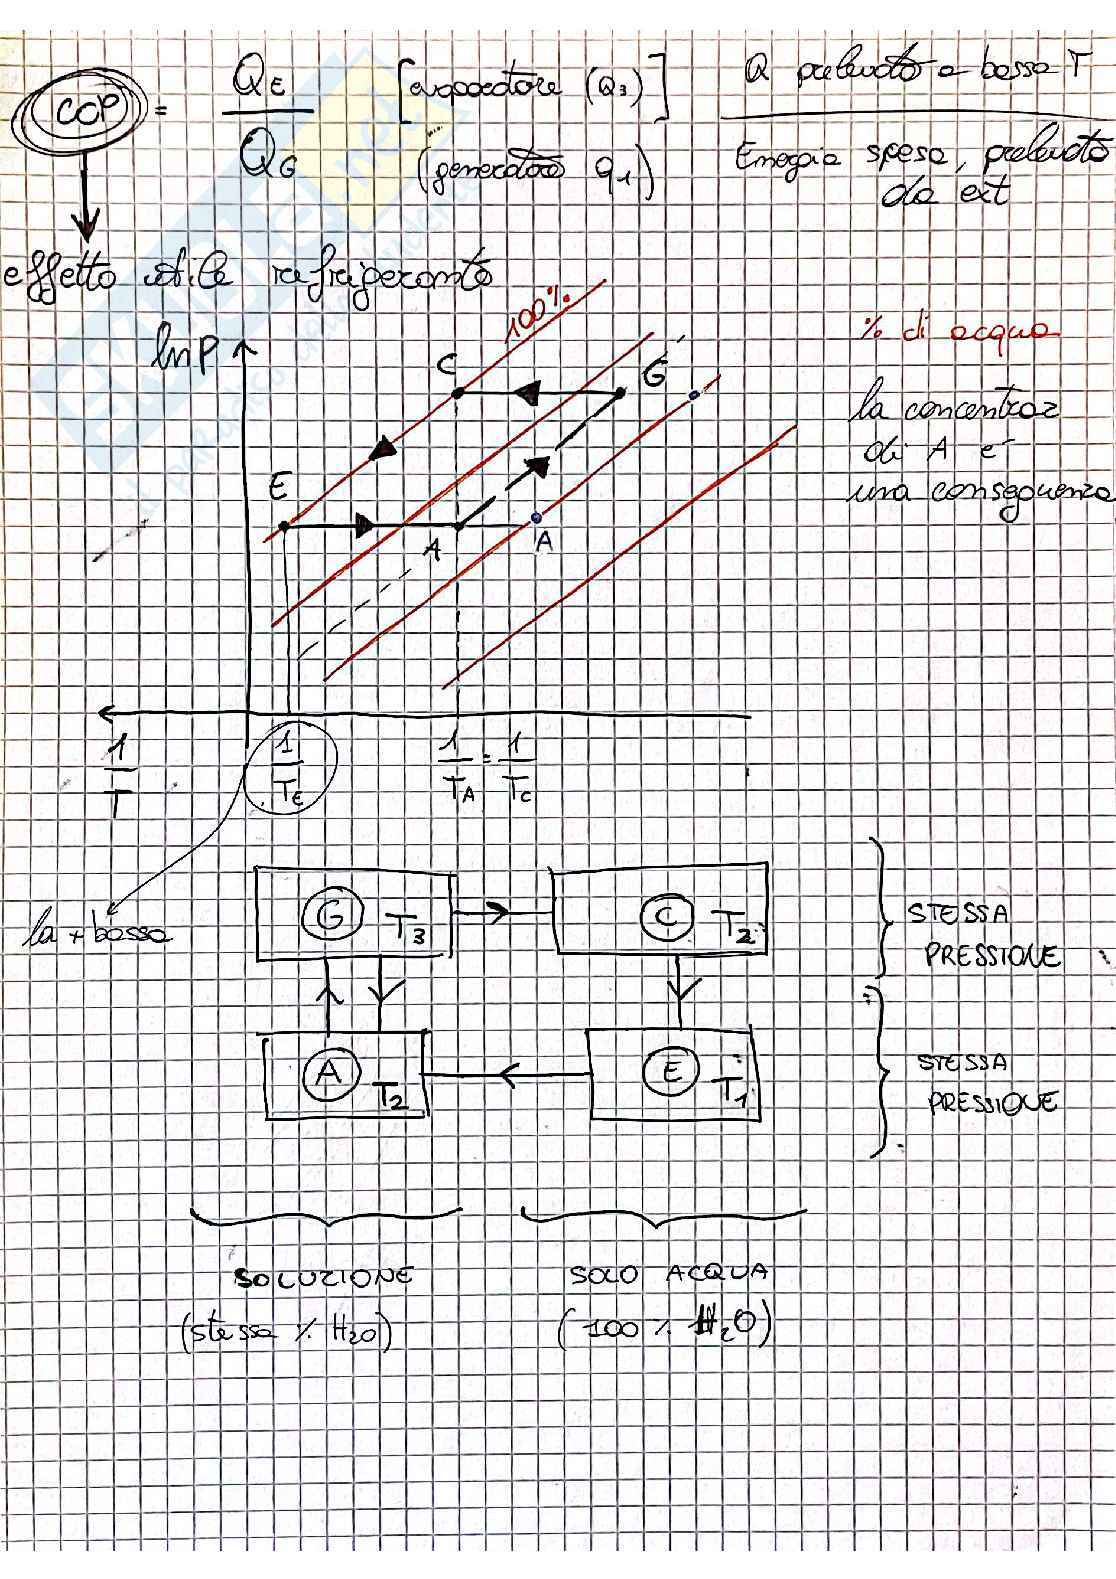 COP = QE / QG [evaporatore (Q3)] Q prelevato a bassa T
(generatore q1) Energia spesa, prelevata
da ext
effetto utile refrigerante
lnP
100%
% di acqua
C
G
la concentraz
di A è
una conseguenza
E
A
A
1/T
1/TE
1/TA = 1/TC
la + bassa
G T3
C T2
STESSA
PRESSIONE
A T2
E T1
STESSA
PRESSIONE
SOLUZIONE
(stessa % H2O)
SOLO ACQUA
(100 % H2O)